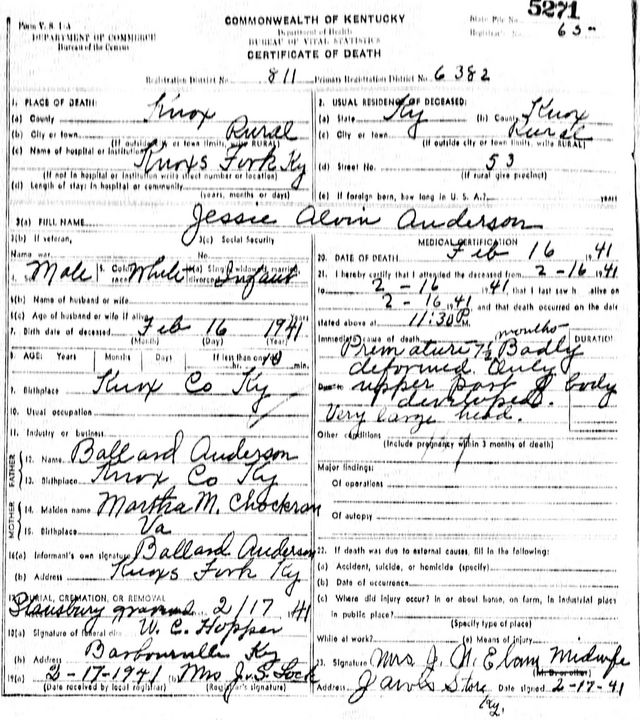 Form V. S. 1-A
DEPARTMENT OF COMMERCE
Bureau of the Census
COMMONWEALTH OF KENTUCKY
Department of Health
BUREAU OF VITAL STATISTICS
CERTIFICATE OF DEATH
State File No. 5271
Registrar's No. 65
Registration District No. 811 Primary Registration District No. 6382
1. PLACE OF DEATH:
(a) County Knox
(b) City or town Rural
(If outside city or town limits, write RURAL)
(c) Name of hospital or institution Knoxs Fork Ky
(If not in hospital or institution, write street number or location)
(d) Length of stay: in hospital or community
(years, months or days)
2. USUAL RESIDENCE OF DECEASED:
(a) State Ky (b) County Knox
(c) City or town Rural
(If outside city or town limits, write RURAL)
(d) Street No. 53
(If rural give precinct)
(e) If foreign born, how long in U. S. A.? years
3(a) FULL NAME Jessie Alvin Anderson
3(b) If veteran, 3(c) Social Security
Name war No.
4. Male 5. Color race White 6(a) Single, widowed, married, divorced Infant
6(b) Name of husband or wife
6(c) Age of husband or wife if alive
7. Birth date of deceased Feb 16 1941
(Month) (Day) (Year)
8. AGE: Years Months Days If less than one day
hr. min.
9. Birthplace Knox Co Ky
10. Usual occupation
11. Industry or business
FATHER
12. Name Ballard Anderson
13. Birthplace Knox Co Ky
MOTHER
14. Maiden name Martha M.
15. Birthplace Va
16(a) Informant's own signature Ballard Anderson
(b) Address Knoxs Fork Ky
17. BURIAL, CREMATION, OR REMOVAL
2/17 1941
18(a) Signature of funeral dir. W. C. Hopper
(b) Address Barbourville Ky
19(a) 2-17-1941 (b) Mrs J. S. Lock
(Date received by local registrar) (Registrar's signature)
MEDICAL CERTIFICATION
20. DATE OF DEATH Feb 16 1941
21. I hereby certify that I attended the deceased from 2-16 1941
to 2-16 1941 that I last saw h alive on
2-16 1941 and that death occurred on the date
stated above at 11:30 P.M.
Immediate cause of death DURATION
Premature 7½ months Badly
deformed Only
Due to upper part of body
developed.
Very large head.
Other conditions
(Include pregnancy within 3 months of death)
Major findings:
Of operations
Of autopsy
22. If death was due to external causes, fill in the following:
(a) Accident, suicide, or homicide (specify)
(b) Date of occurrence
(c) Where did injury occur? In or about home, on farm, in industrial place
in public place?
(Specify type of place)
While at work? (e) Means of injury
23. Signature Mrs J. N. Elam Midwife
(M. D. or other)
Address Jarvis Store Date signed 2-17-41
Ky.